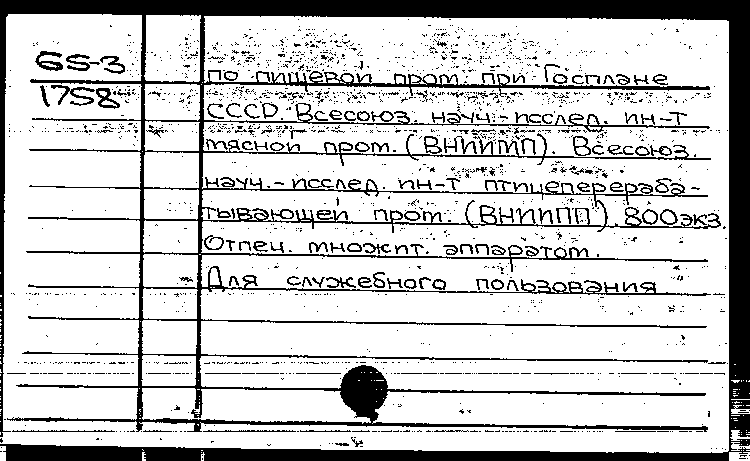 65-3
1758
по пищевой пром. при Госплане
СССР. Всесоюз. науч.-исслед. ин-т
мясной пром. (ВНИИМП). Всесоюз.
науч.-исслед. ин-т птицеперераба-
тывающей пром. (ВНИИПП). 800экз.
Отпеч. множит. аппаратом.
Для служебного пользования